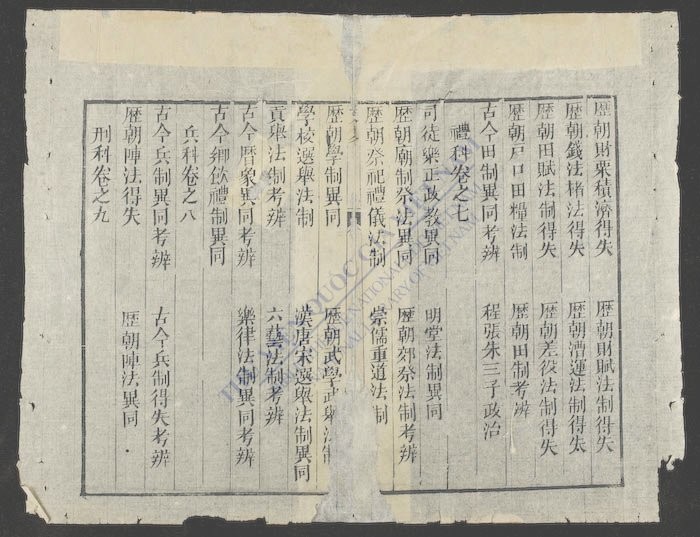 歷朝財粟積濟得失 歷朝財賦法制得失
歷朝錢法楮法得失 歷朝漕運法制得失
歷朝田賦法制得失 歷朝差役法制得失
歷朝戸口田糧法制 歷朝田制考辨
古今田制異同考辨 程張朱三子政治
禮科卷之七
司徒樂正政教異同 明堂法制異同
歷朝廟制祭法異同 歷朝郊祭法制考辨
歷朝祭祀禮儀法制 崇儒重道法制
歷朝學制異同 歷朝武學武舉法制
學校選舉法制 漢唐宋選舉法制異同
貢舉法制考辨 六藝法制考辨
古今曆象異同考辨 樂律法制異同考辨
古今鄉飲禮制異同
兵科卷之八
古今兵制異同考辨 古今兵制得失考辨
歷朝陣法得失 歷朝陣法異同
刑科卷之九
THƯ VIỆN QUỐC GIA VIỆT NAM
NATIONAL LIBRARY OF VIETNAM